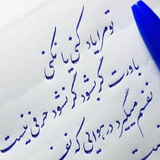 تو مرا یاد کنی یا نکنی
باورت گر بشود گر نشود حرفی نیست
نفسم میگیرد در هوایی که نفس